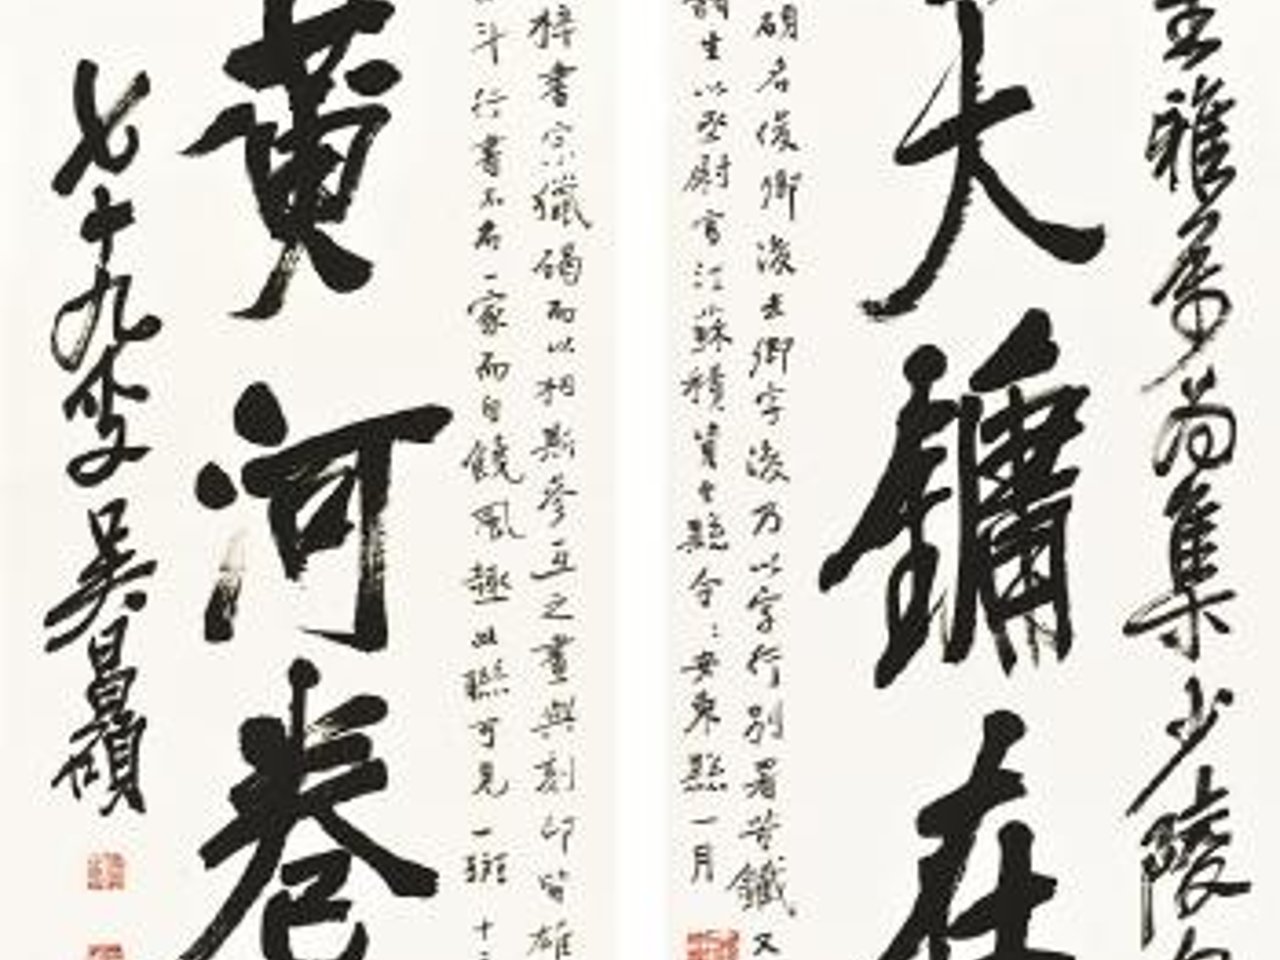 主雅屬為集少陵
大鏞在
碩名俊卿後去卿字後乃以字行別署苦鐵又
生以丞尉官江蘇積資縣令安東縣一月
書宗獵碣而以相斯參互之畫與刻印皆雄
斗行書不名一家而自饒風趣此聯可見一斑十
黃河卷
七十九叟吳昌碩